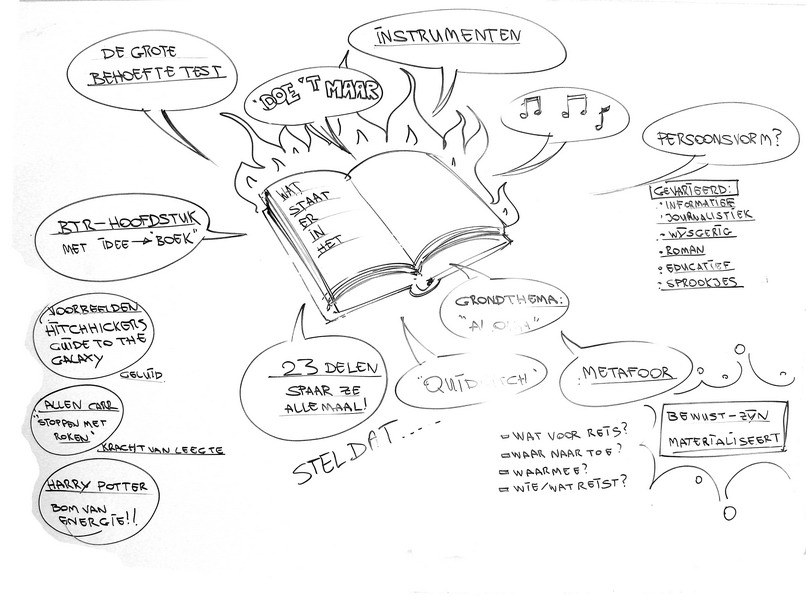 INSTRUMENTEN
DE GROTE
BEHOEFTE TEST
"DOE 'T MAAR
PERSOONSVORM?
GEVARIEERD:
· INFORMATIEF
· JOURNALISTIEK
- WYSGERIG
- ROMAN
· EDUCATIEF
- SPROOKJES
WAT
STAAT
ER
IN
HET
BTR-HOOFDSTUK
MET IDEE → "BOEK"
VOORBEELDEN:
HITCHHICKERS
GUIDE TO THE
GALAXY
GELUID
ALLEN CARR
"STOPPEN MET
ROKEN"
KRACHT VAN LEEGTE
HARRY POTTER
BOM VAN
ENERGIE!!
23 DELEN
SPAAR ZE
ALLEMAAL!
GRONDTHEMA:
METAFOOR
STEL DAT....-
- WAT VOOR REIS?
- WAAR NAAR TOE?
- WAARMEE?
- WIE/WAT REIST?
BEWUST-ZYN
MATERIALISEERT